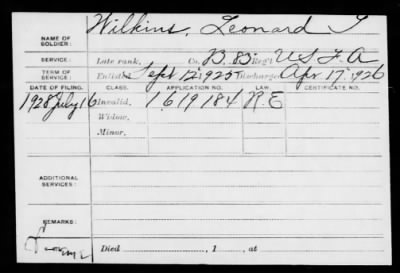 NAME OF SOLDIER: Wilkins, Leonard
SERVICE: Late rank, Co. B. 83 Reg't U S F A
TERM OF SERVICE: Enlisted Sept 12, 1925 Discharged Apr. 17, 1926
DATE OF FILING. CLASS. APPLICATION NO. LAW. CERTIFICATE NO.
1928 July 16 Invalid, 1619184 R.E
Widow,
Minor,
ADDITIONAL SERVICES:
REMARKS:
Died , 1 , at